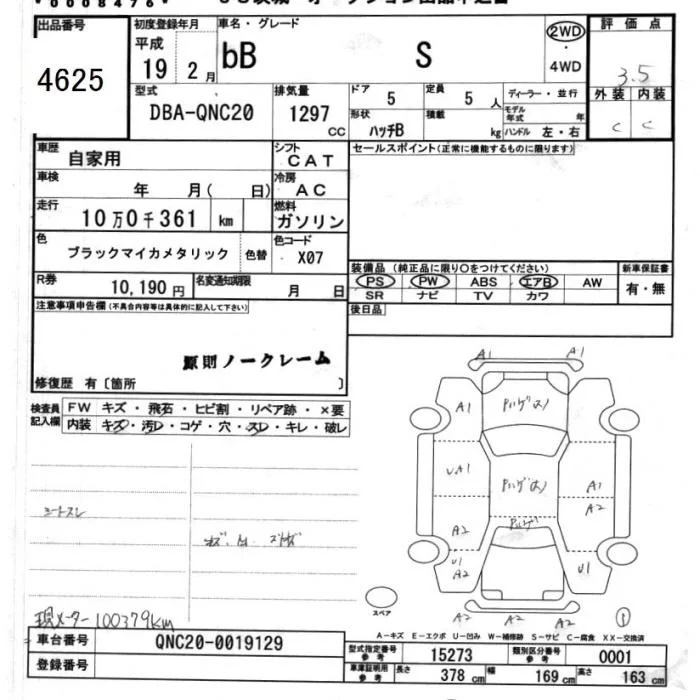 出品番号
4625
初度登録年月
平成
19 2月
車名・グレード
bB S
2WD
・
4WD
評価点
3.5
外装 内装
C C
型式
DBA-QNC20
排気量
1297
CC
ドア
5
定員
5 人
形状
ハッチB
積載
kg
ディーラー・並行
モデル
年式 年
ハンドル 左・右
車歴
自家用
シフト
CAT
車検
年 月( 日)
冷房
AC
走行
10万0千361 km
燃料
ガソリン
色
ブラックマイカメタリック
色替
色コード
X07
R券
10,190円
名変通知期限
月 日
セールスポイント(正常に機能するものに限ります)
装備品 (純正品に限り○をつけてください)
PS PW ABS エアB AW
SR ナビ TV カワ
新車保証書
有・無
後日品
注意事項申告欄(不具合内容等は具体的に記入して下さい)
原則ノークレーム
修復歴 有〔箇所 〕
検査員
記入欄
FW キズ・飛石・ヒビ割・リペア跡・×要
内装 キズ・汚レ・コゲ・穴・スレ・キレ・破レ
シートスレ
現メーター100379km
A1 A1
A1
UA1
A1
A2
A2
U1
A2
U1
A2 A2 A2
スペア
A-キズ E-エクボ U-凹み W-補修跡 S-サビ C-腐食 XX-交換済
車台番号
QNC20-0019129
登録番号
型式指定番号
参考
15273
類別区分番号
参考
0001
車庫証明用
参考
長さ
378 cm
幅
169 cm
高さ
163 cm